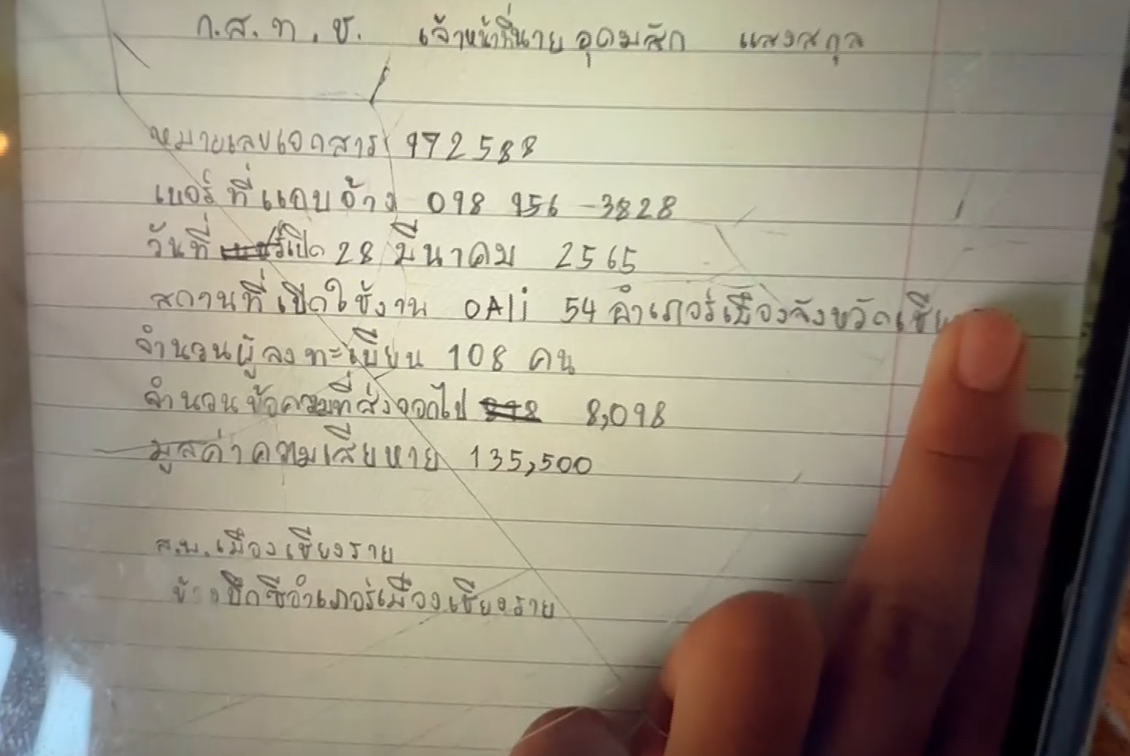 ก.ส.ท.ช. เจ้าหน้าที่นาย อุดมสัก แสงสกุล
หมายเลขเอกสาร 972588
เบอร์ที่แอบอ้าง 098 956-3828
วันที่ เปิด 28 มีนาคม 2565
สถานที่เปิดใช้งาน 54 อำเภอร์เมืองจังหวัด
จำนวนผู้ลงทะเบียน 108 คน
จำนวนข้อความที่ส่งออกไป 8,098
มูลค่าความเสียหาย 135,500
ส.พ.เมืองเชียงราย
บิกซีอำเภอร์เมืองเชียงราย